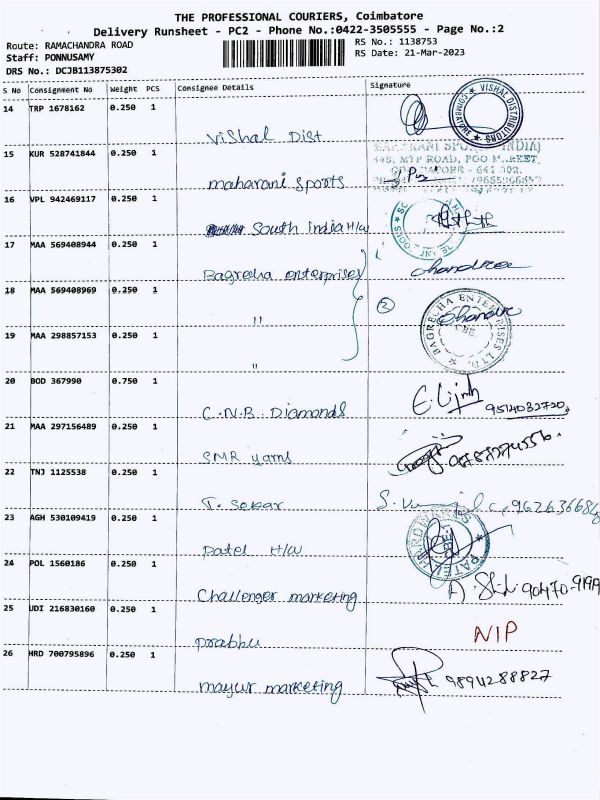 THE PROFESSIONAL COURIERS, Coimbatore
Delivery Runsheet - PC2 - Phone No.:0422-3505555 - Page No.:2
Route: RAMACHANDRA ROAD
RS No.: 1138753
Staff: PONNUSAMY
RS Date: 21-Mar-2023
DRS No.: DCJB113875302
S No Consignment No Weight PCS Consignee Details Signature
14 TRP 1678162 0.250 1
VISHAL DISTRIBUTORS
COIMBATORE
Vishal Dist
15 KUR 528741844 0.250 1
MAHARANI SPORTS (INDIA)
448, MTP ROAD, POO MARKET,
COIMBATORE - 641 002.
maharani sports
16 VPL 942469117 0.250 1
South india H/w
17 MAA 569408944 0.250 1
Bagrecha enterprises chandra
18 MAA 569408969 0.250 1
" 2
BAGRECHA ENTERPRISES LTD.
CBE.
19 MAA 298857153 0.250 1
"
20 BOD 367990 0.750 1
C.N.B. Diamonds 9514032720
21 MAA 297156489 0.250 1
SMR yarns
22 TNJ 1125538 0.250 1
T. Sekar 9626366848
23 AGH 530109419 0.250 1
PATEL HARDWARES
Patel H/w
24 POL 1560186 0.250 1
Challenger marketing 90470-9199
25 UDI 216830160 0.250 1
Prabhu NIP
26 HRD 700795896 0.250 1
mayur marketing 9894288827